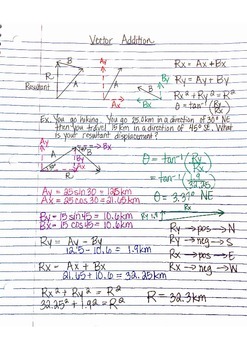 Vector Addition
B
R
A
Resultant
Ay
A
Ax
B
By
Bx
Rx = Ax + Bx
Ry = Ay + By
Rx² + Ry² = R²
θ = tan⁻¹(Ry/Rx)
Ex. You go hiking. You go 25.0km in a direction of 30° NE
then you travel 15km in a direction of 45° SE. What
is your resultant displacement?
Ay
A
B
By
R
Ax
Bx
θ = tan⁻¹(Ry/Rx)
θ = tan⁻¹(1.9/32.25)
θ = 3.37° NE
Ay = 25 sin 30 = 12.5km
Ax = 25 cos 30 = 21.65km
By = 15 sin 45 = 10.6km
Bx = 15 cos 45 = 10.6km
Rx
R
Ry
Ry = Ay - By
12.5 - 10.6 = 1.9km
Rx = Ax + Bx
21.65 + 10.6 = 32.25km
Rx² + Ry² = R²
32.25² + 1.9² = R²
Ry → pos → N
Ry → neg → S
Rx → pos → E
Rx → neg → W
R = 32.3km